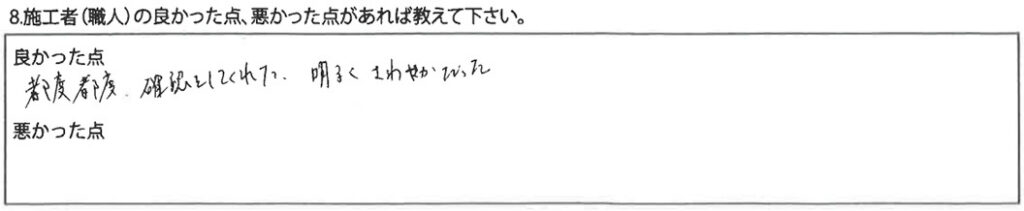 8.施工者(職人)の良かった点、悪かった点があれば教えて下さい。
良かった点
都度都度、確認をしてくれた。 明るく さわやかだった
悪かった点